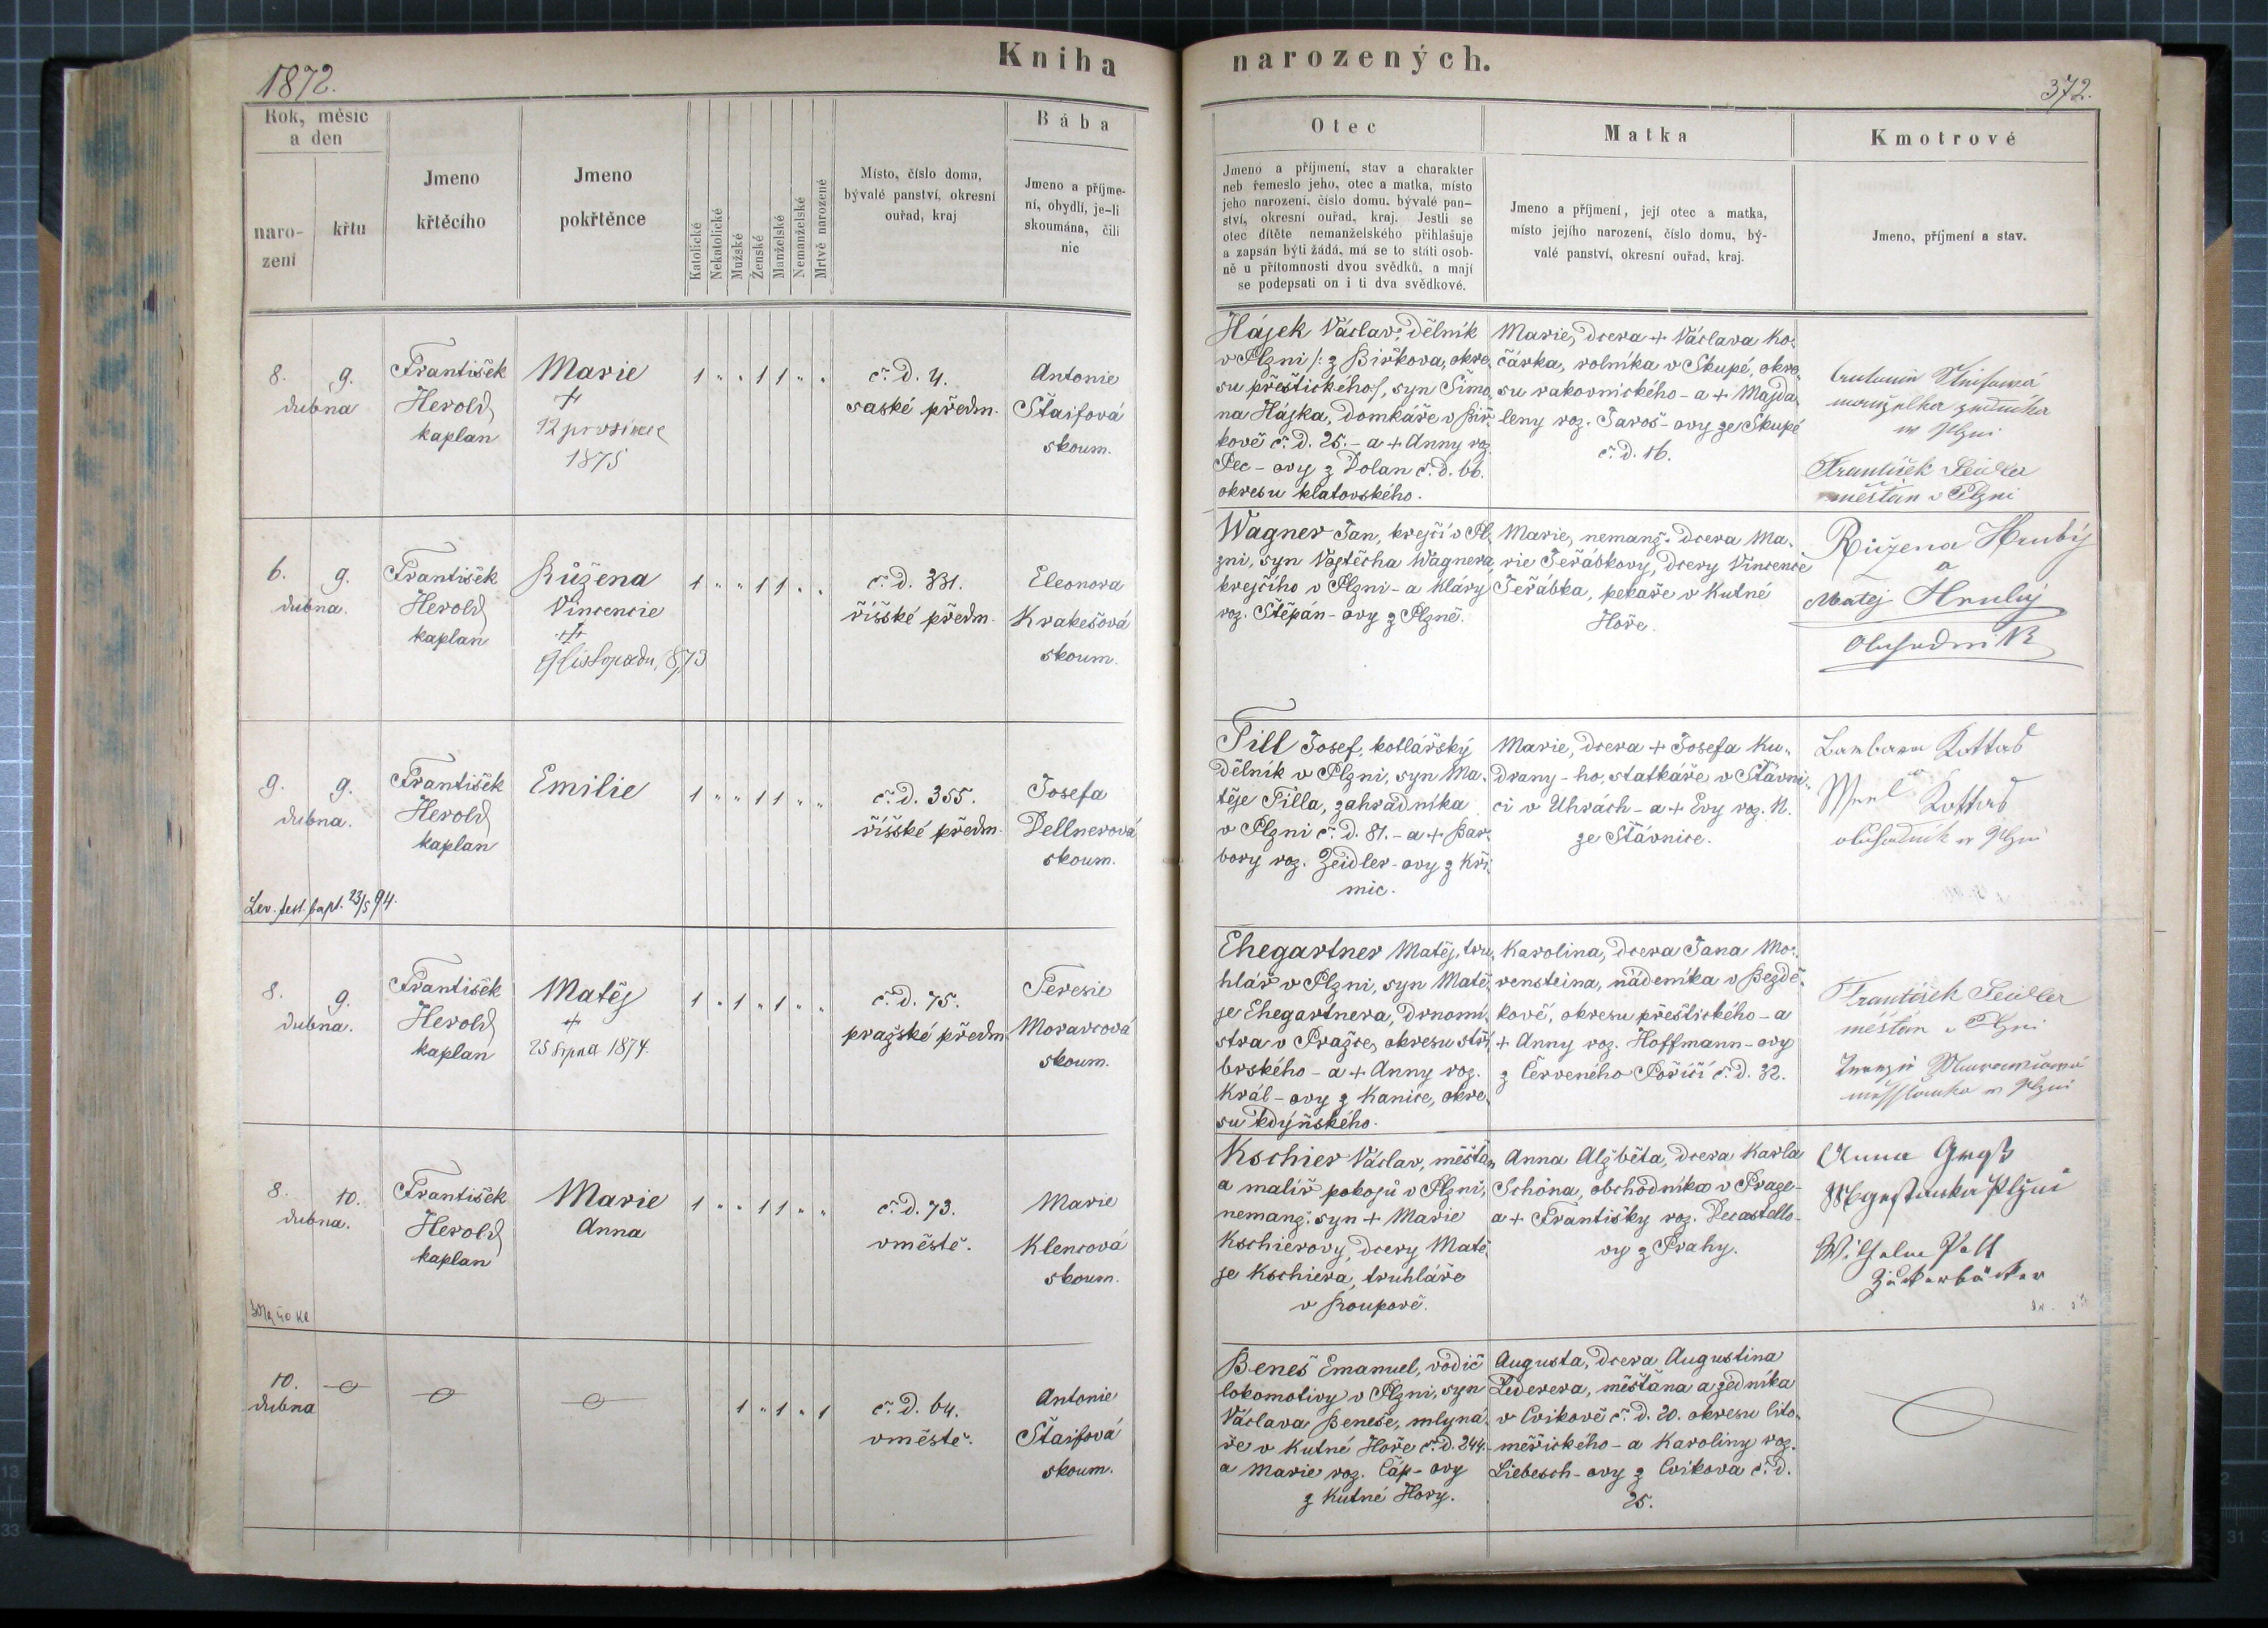 Kniha
narozených.
1872.
372.
Rok, měsíc
a den
naro-
zení
křtu
Jmeno
křtěcího
Jmeno
pokřtěnce
Katolické
Nekatolické
Mužské
Ženské
Manželské
Nemanželské
Mrtvě narozené
Místo, číslo domu,
bývalé panství, okresní
ouřad, kraj
Bába
Jmeno a příjme-
ní, obydlí, je-li
skoumána, čili
nic
Otec
Jmeno a příjmení, stav a charakter
neb řemeslo jeho, otec a matka, místo
jeho narození, číslo domu, bývalé pan-
ství, okresní ouřad, kraj. Jestli se
otec dítěte nemanželského přihlašuje
a zapsán býti žádá, má se to státi osob-
ně u přítomnosti dvou svědků, a mají
se podepsati on i ti dva svědkové.
Matka
Jmeno a příjmení, její otec a matka,
místo jejího narození, číslo domu, bý-
valé panství, okresní ouřad, kraj.
Kmotrové
Jmeno, příjmení a stav.
8. 9.
dubna
František
Herold
kaplan
Marie
+
12 prosince
1875
1 " " 1 1 " "
č. d. 4.
saské předm.
Antonie
Štaifová
skoum.
Hájek Václav, dělník
v Plzni /: z Biřkova, okre-
su přeštického/, syn Šimo-
na Hájka, domkáře v Biř-
kově č. d. 25. - a + Anny roz.
Pec - ovy z Dolan č. d. 66.
okresu klatovského.
Marie, dcera + Václava Ko-
čárka, rolníka v Skupé, okre-
su rakovnického - a + Majda-
leny roz. Jaroš - ovy ze Skupé
č. d. 16.
manželka zedníka
w Plzni
František Seidler
měšťan v Plzni
6. 9.
dubna.
František
Herold
kaplan
Růžena
Vincencie
+
9 listopadu 1873
1 " " 1 1 " "
č. d. 331.
říšské předm.
Eleonora
Krakešová
skoum.
Wagner Jan, krejčí v Pl-
zni, syn Vojtěcha Wagnera
krejčího v Plzni - a Kláry
roz. Štěpán - ovy z Plzně.
Marie, nemanž. dcera Ma-
rie Jeřábkovy, dcery Vincence
Jeřábka, pekaře v Kutné
Hoře.
Růžena Hrubý
a
Matěj Hrubý
Obchodník
9. 9.
dubna.
František
Herold
kaplan
Emilie
1 " " 1 1 " "
č. d. 355.
říšské předm.
Josefa
Dellnerová
skoum.
Lev. test. bapt. 23/5 94.
Till Josef, kotlářský
dělník v Plzni, syn Ma-
těje Tilla, zahradníka
v Plzni č. d. 81. - a + Bar-
bory roz. Zeidler - ovy z Kři-
mic.
Marie, dcera + Josefa Ku-
drany - ho, statkáře v Štávni-
ci v Uhrách - a + Evy roz. N.
ze Štávnice.
Barbara Kottas
Kottas
obchodník w Plzni
8. 9.
dubna.
František
Herold
kaplan
Matěj
+
25 srpna 1874.
1 " 1 " 1 " "
č. d. 75.
pražské předm.
Teresie
Moravcová
skoum.
Ehegartner Matěj, tru-
hlář v Plzni, syn Matě-
je Ehegartnera, drnomi-
stra v Prazce, okresu stří-
brského - a + Anny roz.
Král - ovy z Kanice, okre-
su kdýňského.
Karolina, dcera Jana Mo-
rensteina, nádeníka v Bezdě-
kově, okresu přeštického - a
+ Anny roz. Hoffmann - ovy
z Červeného Poříčí č. d. 32.
František Seidler
měšťan v Plzni
w Plzni
8. 10.
dubna.
František
Herold
kaplan
Marie
Anna
1 " " 1 1 " "
č. d. 73.
v městě.
Marie
Klencová
skoum.
Kschier Václav, měšťan
a malíř pokojů v Plzni,
nemanž. syn + Marie
Kschierovy, dcery Matě-
je Kschiera, truhláře
v Roupově.
Anna Alžběta, dcera Karla
Schöna, obchodníka v Praze -
a + Františky roz. Decastello-
vy z Prahy.
Anna
Wilhelm
Zuckerbäcker
10.
dubna
1 " 1 " 1
č. d. 64.
v městě.
Antonie
Štaifová
skoum.
Beneš Emanuel, vodič
lokomotivy v Plzni, syn
Václava Beneše, mlyná-
ře v Kutné Hoře č. d. 244. -
a Marie roz. Čáp - ovy
z Kutné Hory.
Augusta, dcera Augustina
Lederera, měšťana a zedníka
v Cvikově č. d. 20. okresu lito-
měřického - a Karoliny roz.
Liebesch - ovy z Cvikova č. d.
25.